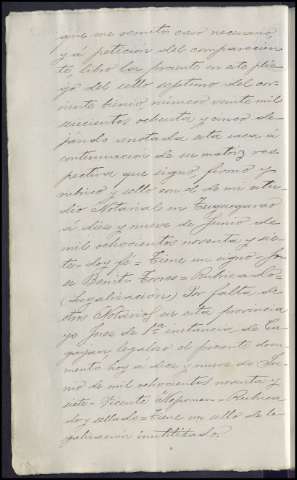 que me remito caso necesario,
y á petición del comparecien-
te, libro la presente en este plie-
go del sello septimo del cor-
riente bienio número veinte mil
seiscientos ochenta y cinco de-
jando anotada esta saca á
continuacion de su matriz res-
pectiva que signo, firmo y
rubrico y sello con el de mi estu-
dio Notarial en Tuguegarao
á diez y nueve de Junio de
mil ochocientos noventa y sie-
te - doy fé - Tiene un signo - Jo-
se Benito Torres - Rubricado -
(Legalización) Por falta de
dos Notarios en esta provincia
yo Juez de 1ª instancia de Ca-
gayan, legalizo el presente docu-
mento, hoy á diez y nueve de Ju-
nio de mil ochocientos noventa y
siete - Vicente - Rubrica-
do y sellado - Tiene un sello de le-
galización inutilizado.